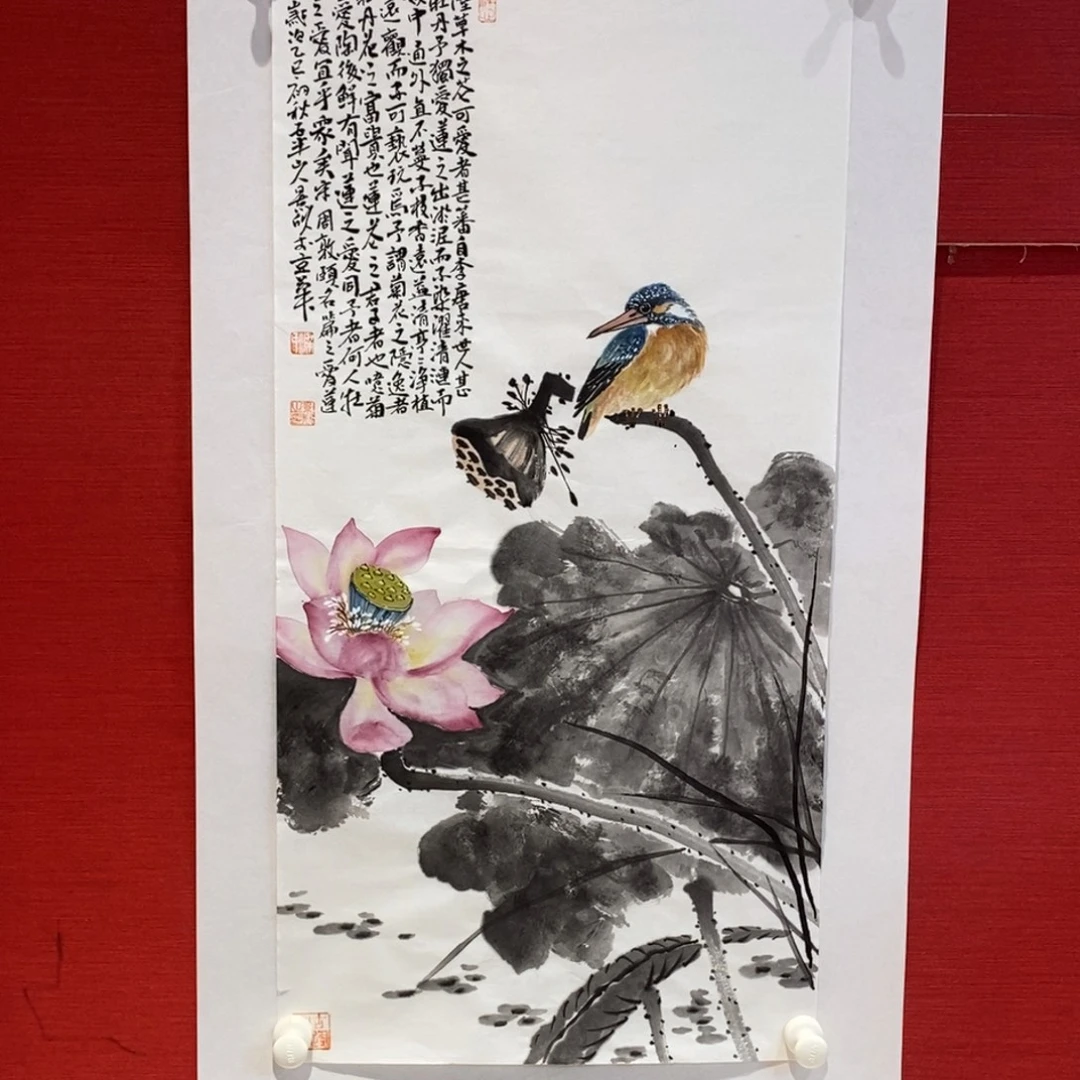 陸草木之花可愛者甚蕃自李唐来世人甚
牡丹予獨愛蓮之出淤泥而不染濯清漣而
中通外直不蔓不枝香遠益清亭亭淨植
遠觀而不可褻玩焉予謂菊花之隱逸者
丹花之富貴也蓮花之君子者也噫菊
愛陶後鮮有聞蓮之愛同予者何人牡
之愛宜乎眾矣宋周敦頤名篇之愛蓮
歲次乙巳初秋 山人 於京華